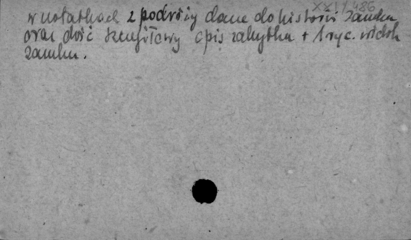 XXIV 486
w notatkach z podróży dane do historii zamku
oraz dość szczegółowy opis zabytku + 1 ryc. widok
zamku.